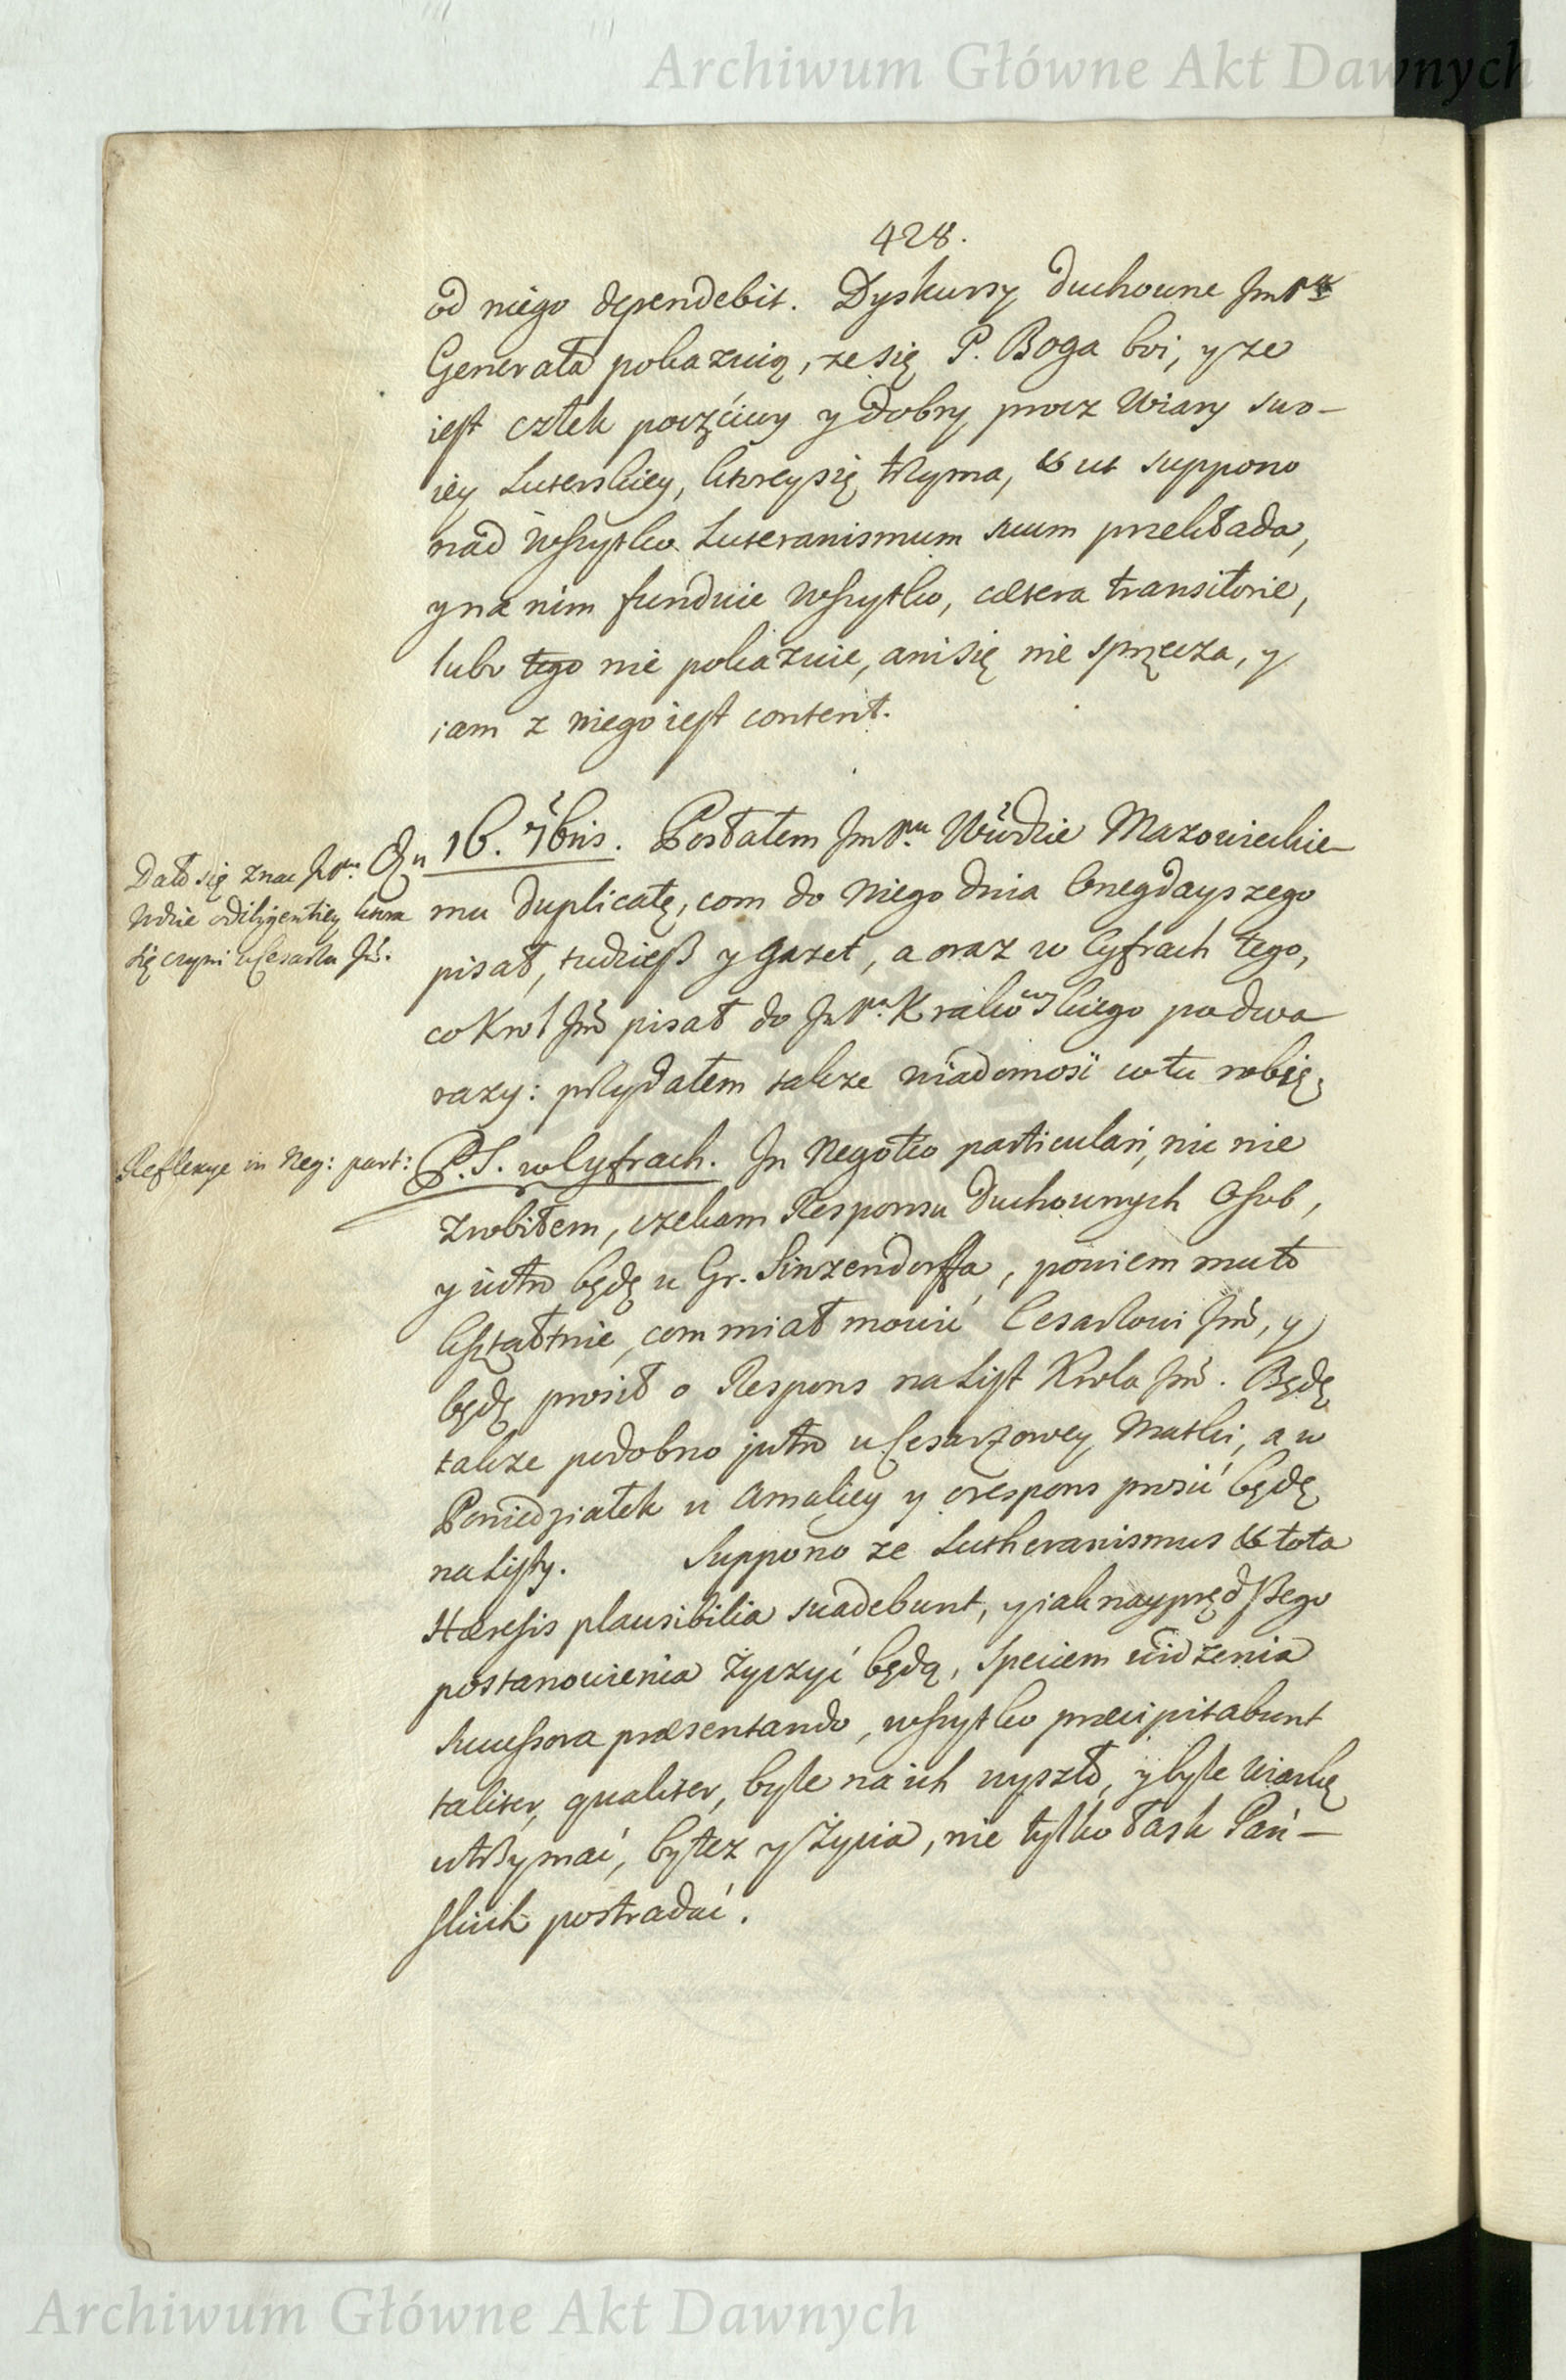 Archiwum Główne Akt Dawnych
428.
od niego dependebit. Dyskursy duchowne Jmp
Generała pokazuią, ze się P. Boga boi, y ze
iest człek poczciwy y dobry procz Wiary swo-
iey Luterskiey, ktorey się trzyma, & ut suppono
nad wszystko Luteranismum suum przekłada,
y na nim funduie wszystko, cætera transitorie,
lubo tego nie pokazuie, ani się nie sprzecza, y
iam z niego iest content.
Dał się znac JPu
Wdzie o diligentiey ktora
się czyni u Cesarza Jm̃.
16. 7bris. Posłałem JmPu Wwdzie Mazowieckie-
mu duplicatę, com do niego dnia Onegdayszego
pisał, tudziesz y gazet, a oraz w Cyfrach tego,
co Krol Jm̃ pisał do JPa Krakowskiego po dwa
razy: przydałem takze wiadomosci co tu robię.
Reflexye in Neg: part:
P.S. w Cyfrach. In Negotio particulari, nic nie
zrobiłem, czekam Responsu duchownych Osob,
y iutro będę u Gr. Sinzendorffa, powiem mu to
kształtnie, com miał mowić Cesarzowi Jm̃, y
będę prosił o Respons na List Krola Jm̃. Będę
takze podobno jutro u Cesarzowey Matki, a w
Poniedziałek u Amaliey y o respons prosić będę
na Listy. Suppono ze Lutheranismus & tota
Hæresis plausibilia suadebunt, y iak nayprędszego
postanowienia zyczyć będą, speciem widzenia
Successora præsentando, wszystko præcipitabunt
taliter, qualiter, byle na ich wyszło, y byle Wiarkę
utrzymać, bytez y Zycia, nie tylko łask Pań-
skich postradać.
Archiwum Główne Akt Dawnych